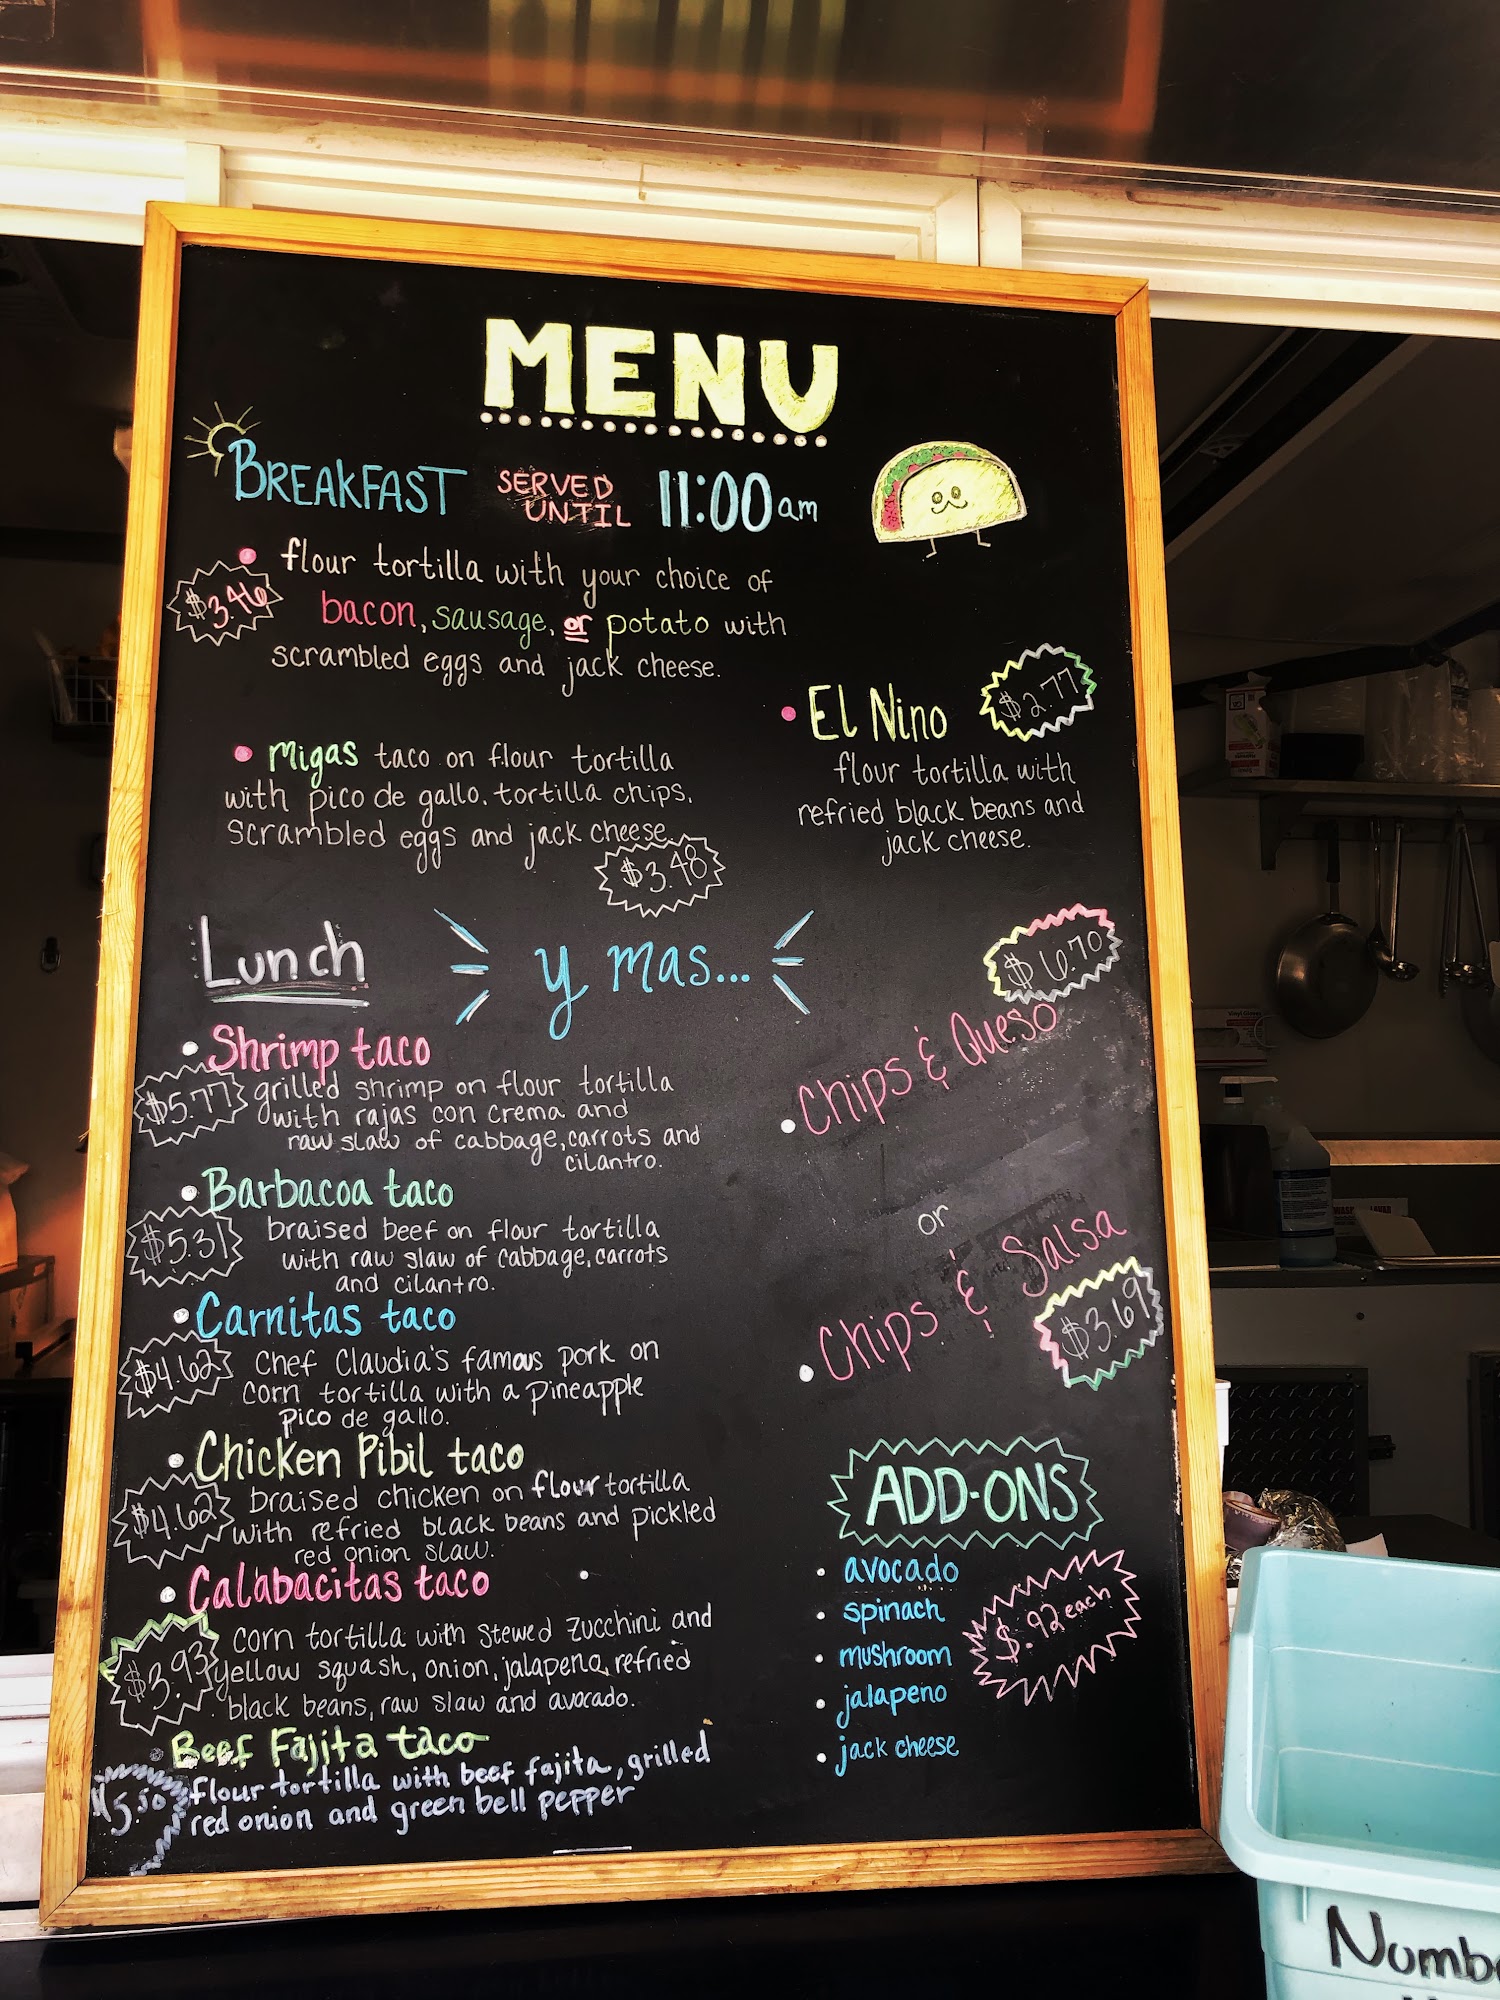 MENU
BREAKFAST SERVED UNTIL 11:00 am
• flour tortilla with your choice of
$3.46
bacon, sausage, or potato with
scrambled eggs and jack cheese.
• Migas taco on flour tortilla
with pico de gallo, tortilla chips,
scrambled eggs and jack cheese.
$3.48
• El Nino
$2.77
flour tortilla with
refried black beans and
jack cheese.
Lunch
y mas...
• Shrimp taco
$5.77
grilled shrimp on flour tortilla
with rajas con crema and
raw slaw of cabbage, carrots and
cilantro.
• Barbacoa taco
$5.31
braised beef on flour tortilla
with raw slaw of cabbage, carrots
and cilantro.
• Carnitas taco
$4.62
Chef Claudia's famous pork on
corn tortilla with a pineapple
pico de gallo.
• Chicken Pibil taco
$4.62
braised chicken on flour tortilla
with refried black beans and pickled
red onion slaw.
• Calabacitas taco
$3.93
corn tortilla with stewed zucchini and
yellow squash, onion, jalapeno, refried
black beans, raw slaw and avocado.
Beef Fajita taco
$5.50
flour tortilla with beef fajita, grilled
red onion and green bell pepper
$6.70
• Chips & Queso
or
• Chips & Salsa
$3.69
ADD-ONS
• avocado
• spinach
• mushroom
• jalapeno
• jack cheese
$.92 each
Numb